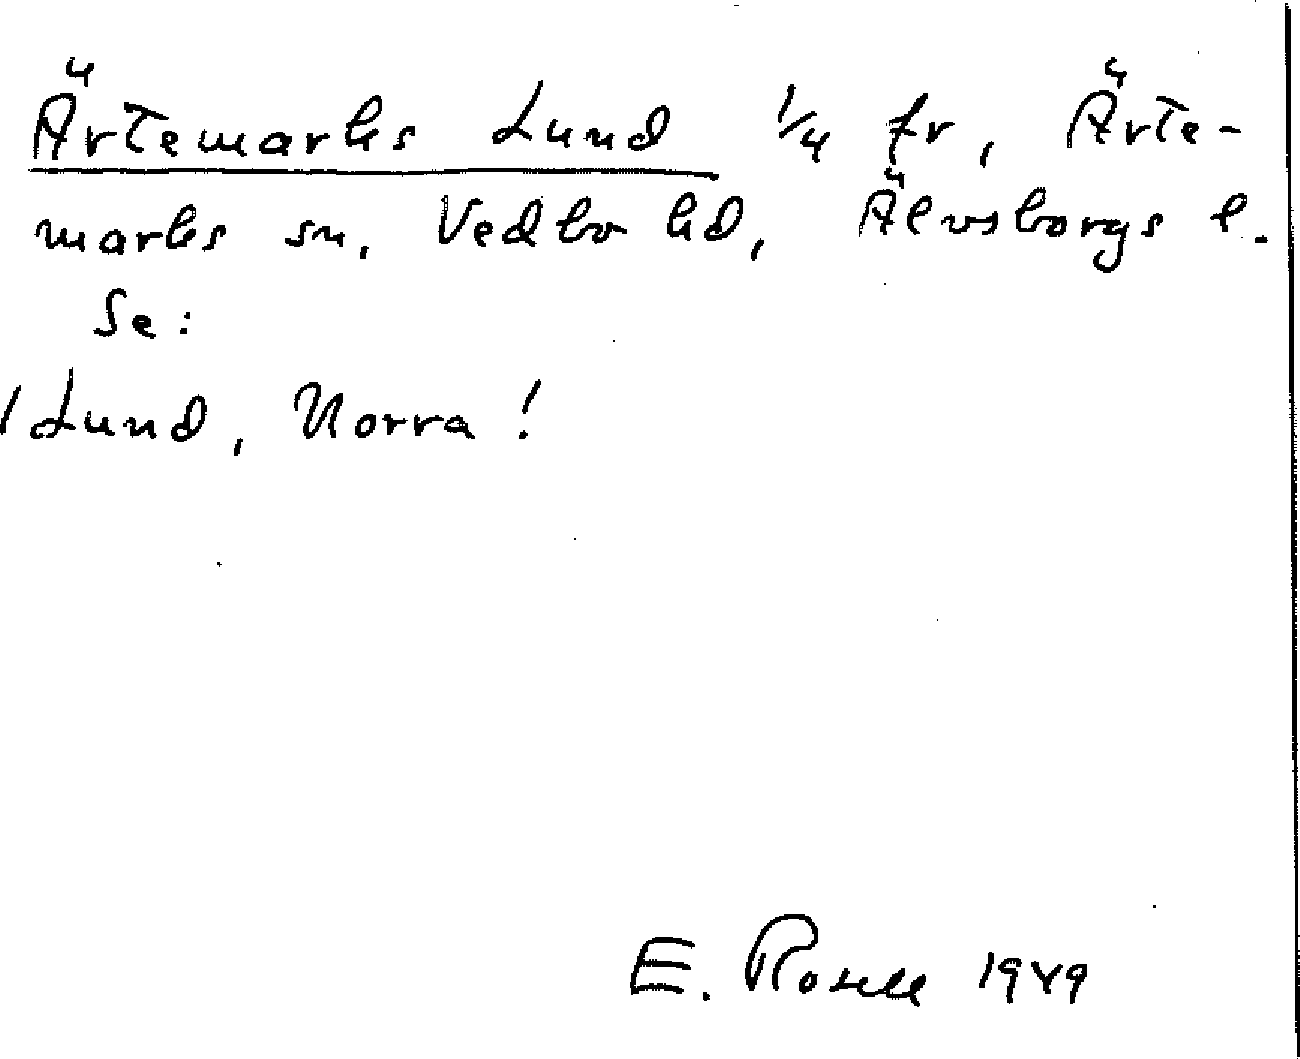 Ärtemarks Lund 1/4 fr, Ärte-
marks sn, Vedbo hd, Älvsborgs l.
Se:
/ Lund, Norra !
E. Rosell 1949